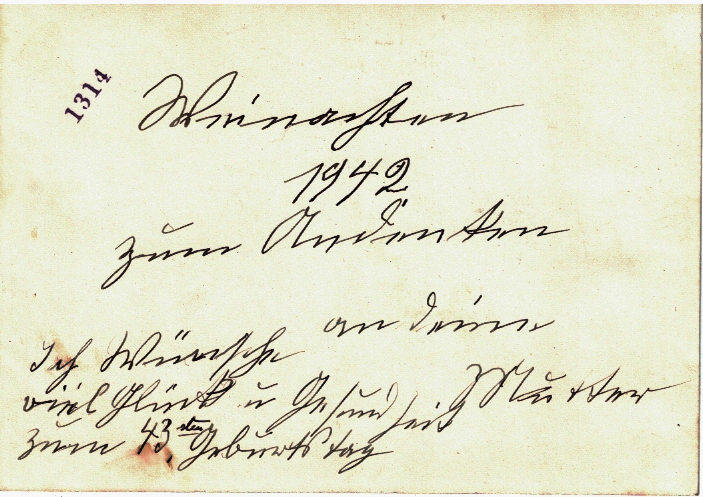 1314
Weinachten
1942
zum Andenken
an deine
Mutter
Ich Wünsche
viel Glück u Gesundheit
zum 43.sten Geburtstag